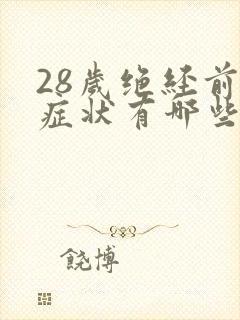 28岁绝经前
症状有哪些
饶博